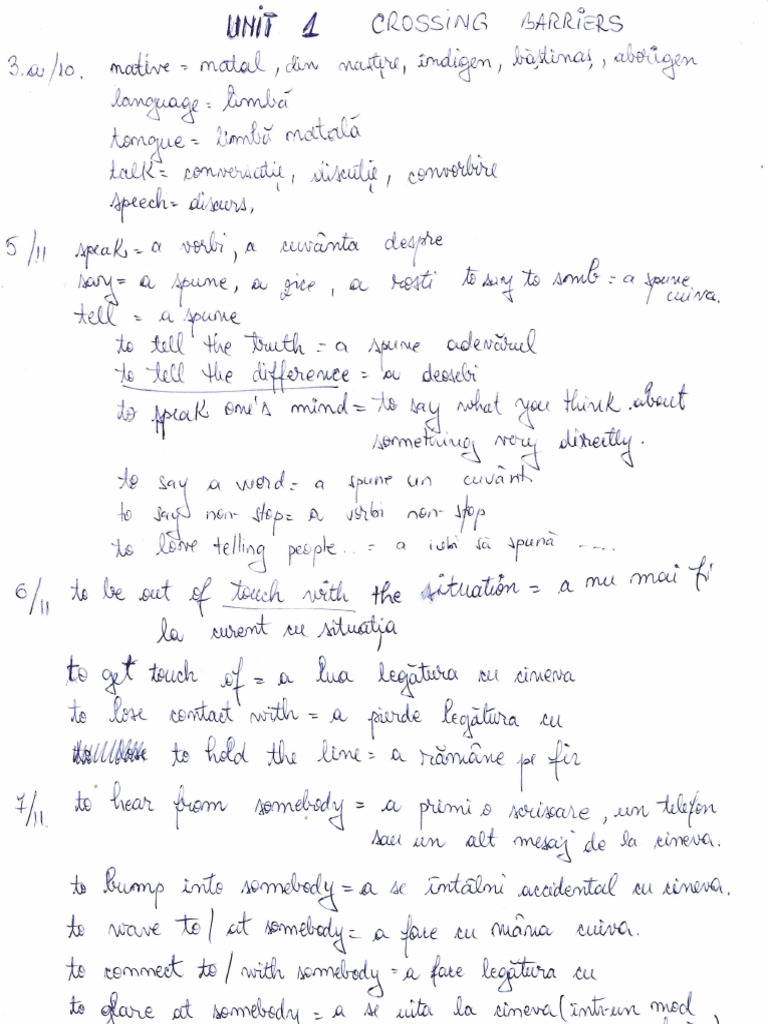 UNIT 1 CROSSING BARRIERS
3.a/10. native = natal, din naştere, indigen, băştinaş, aborigen
language = limbă
tongue = limbă natală
talk = conversaţie, discuţie, convorbire
speech = discurs,
5/11 speak = a vorbi, a cuvânta despre
say = a spune, a zice, a rosti to say to somb = a spune
cuiva.
tell = a spune
to tell the truth = a spune adevărul
to tell the difference = a deosebi
to speak one's mind = to say what you think about
something very directly.
to say a word = a spune un cuvânt
to say non-stop = a vorbi non-stop
to love telling people... = a iubi să spună ....
6/11 to be out of touch with the situation = a nu mai fi
la curent cu situaţia
to get touch of = a lua legătura cu cineva
to lose contact with = a pierde legătura cu
to hold the line = a rămâne pe fir
7/11. to hear from somebody = a primi o scrisoare, un telefon
sau un alt mesaj de la cineva.
to bump into somebody = a se întâlni accidental cu cineva.
to wave to / at somebody = a face cu mâna cuiva.
to connect to / with somebody = a face legătura cu
to glare at somebody = a se uita la cineva (într-un mod